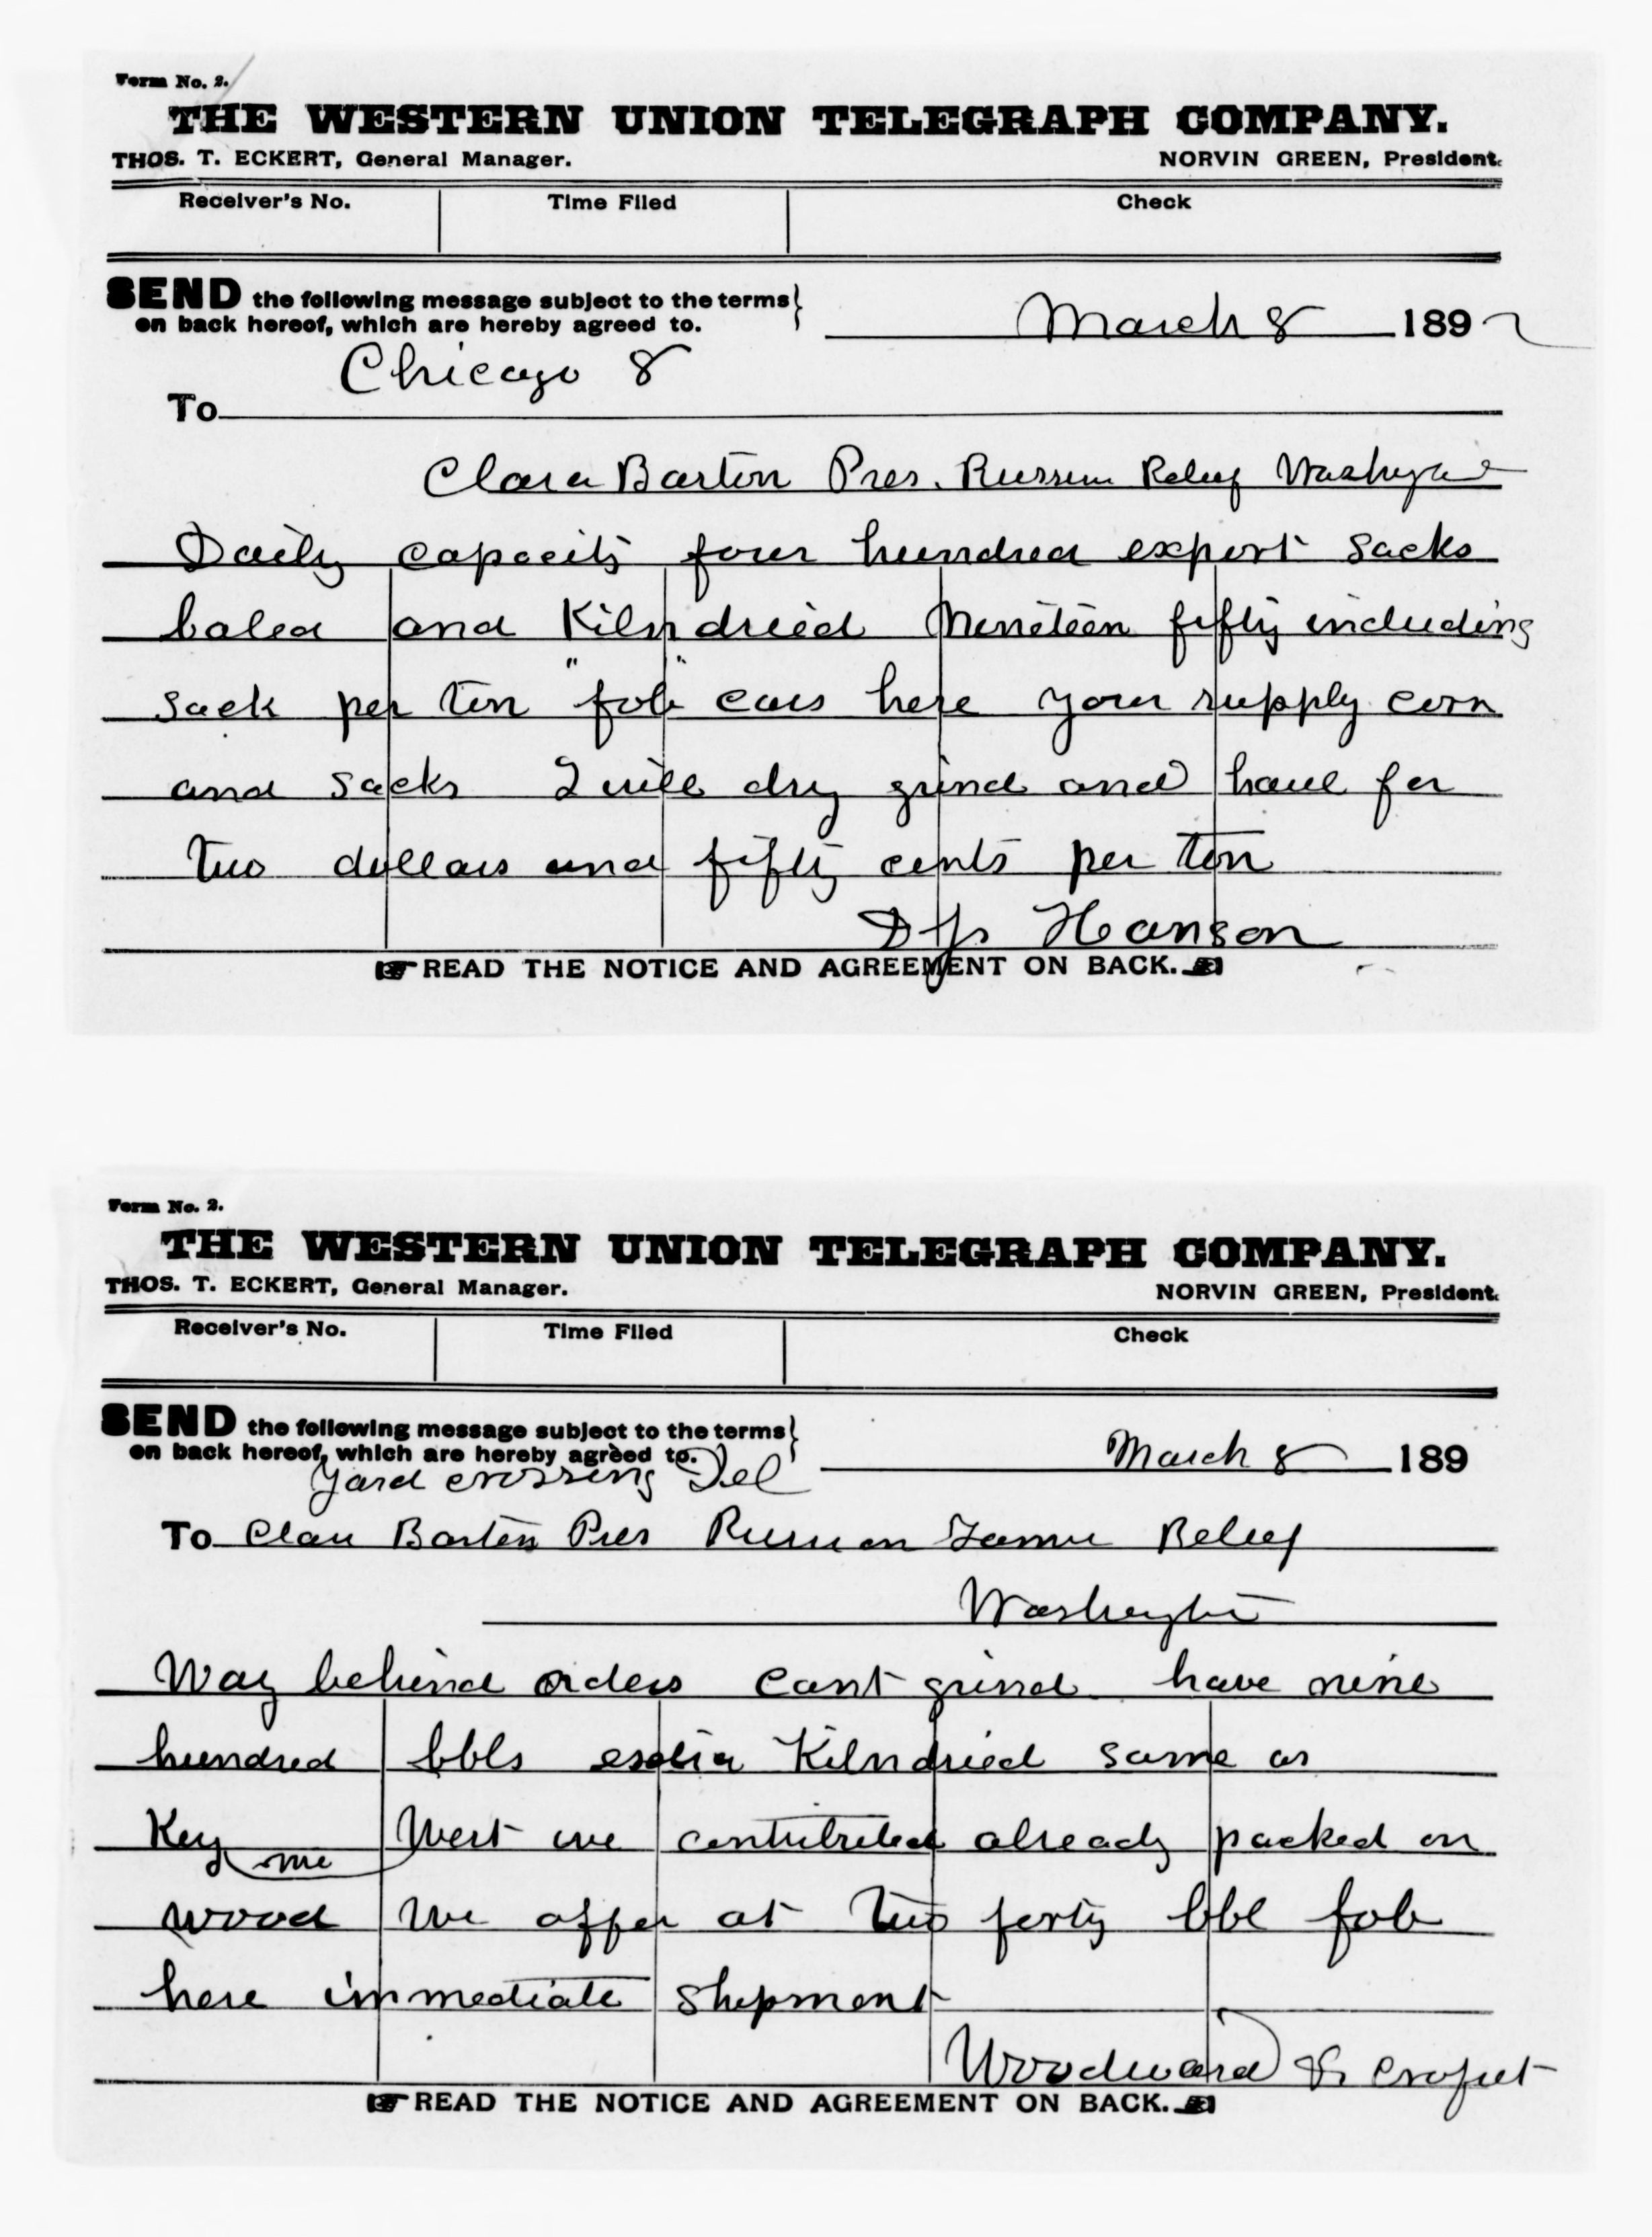 Form No. 2.
THE WESTERN UNION TELEGRAPH COMPANY.
THOS. T. ECKERT, General Manager. NORVIN GREEN, President.
Receiver's No. Time Filed Check
SEND the following message subject to the terms
on back hereof, which are hereby agreed to.
March 8 1892
Chicago 8
To
Clara Barton Pres. Russian Relief Washington
Daily capacity four hundred export sacks
baled and Kilndried Nineteen fifty including
sack per ton "fob" cars here your supply corn
and sacks I will dry grind and haul for
two dollars and fifty cents per ton
Hanson
READ THE NOTICE AND AGREEMENT ON BACK.
Form No. 2.
THE WESTERN UNION TELEGRAPH COMPANY.
THOS. T. ECKERT, General Manager. NORVIN GREEN, President.
Receiver's No. Time Filed Check
SEND the following message subject to the terms
on back hereof, which are hereby agreed to.
March 8 189
Yard crossing Del
To Clara Barton Pres Russian Famine Relief
Washington
Way behind orders cant grind have nine
hundred bbls extra Kilndried same as
Key West we contributed already packed on
me
wood we offer at two forty bbl fob
here immediate shipment
Woodward &
READ THE NOTICE AND AGREEMENT ON BACK.